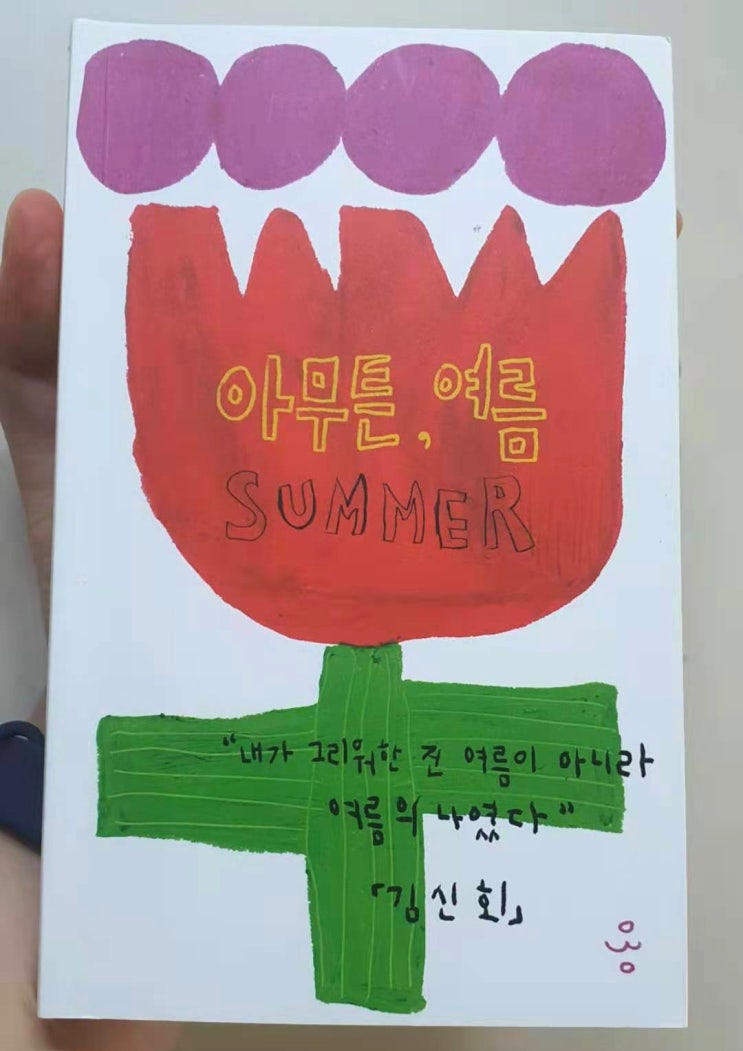 아무튼, 여름
SUMMER
"내가 그리워한 건 여름이 아니라
여름의 나였다"
「김신회」
030